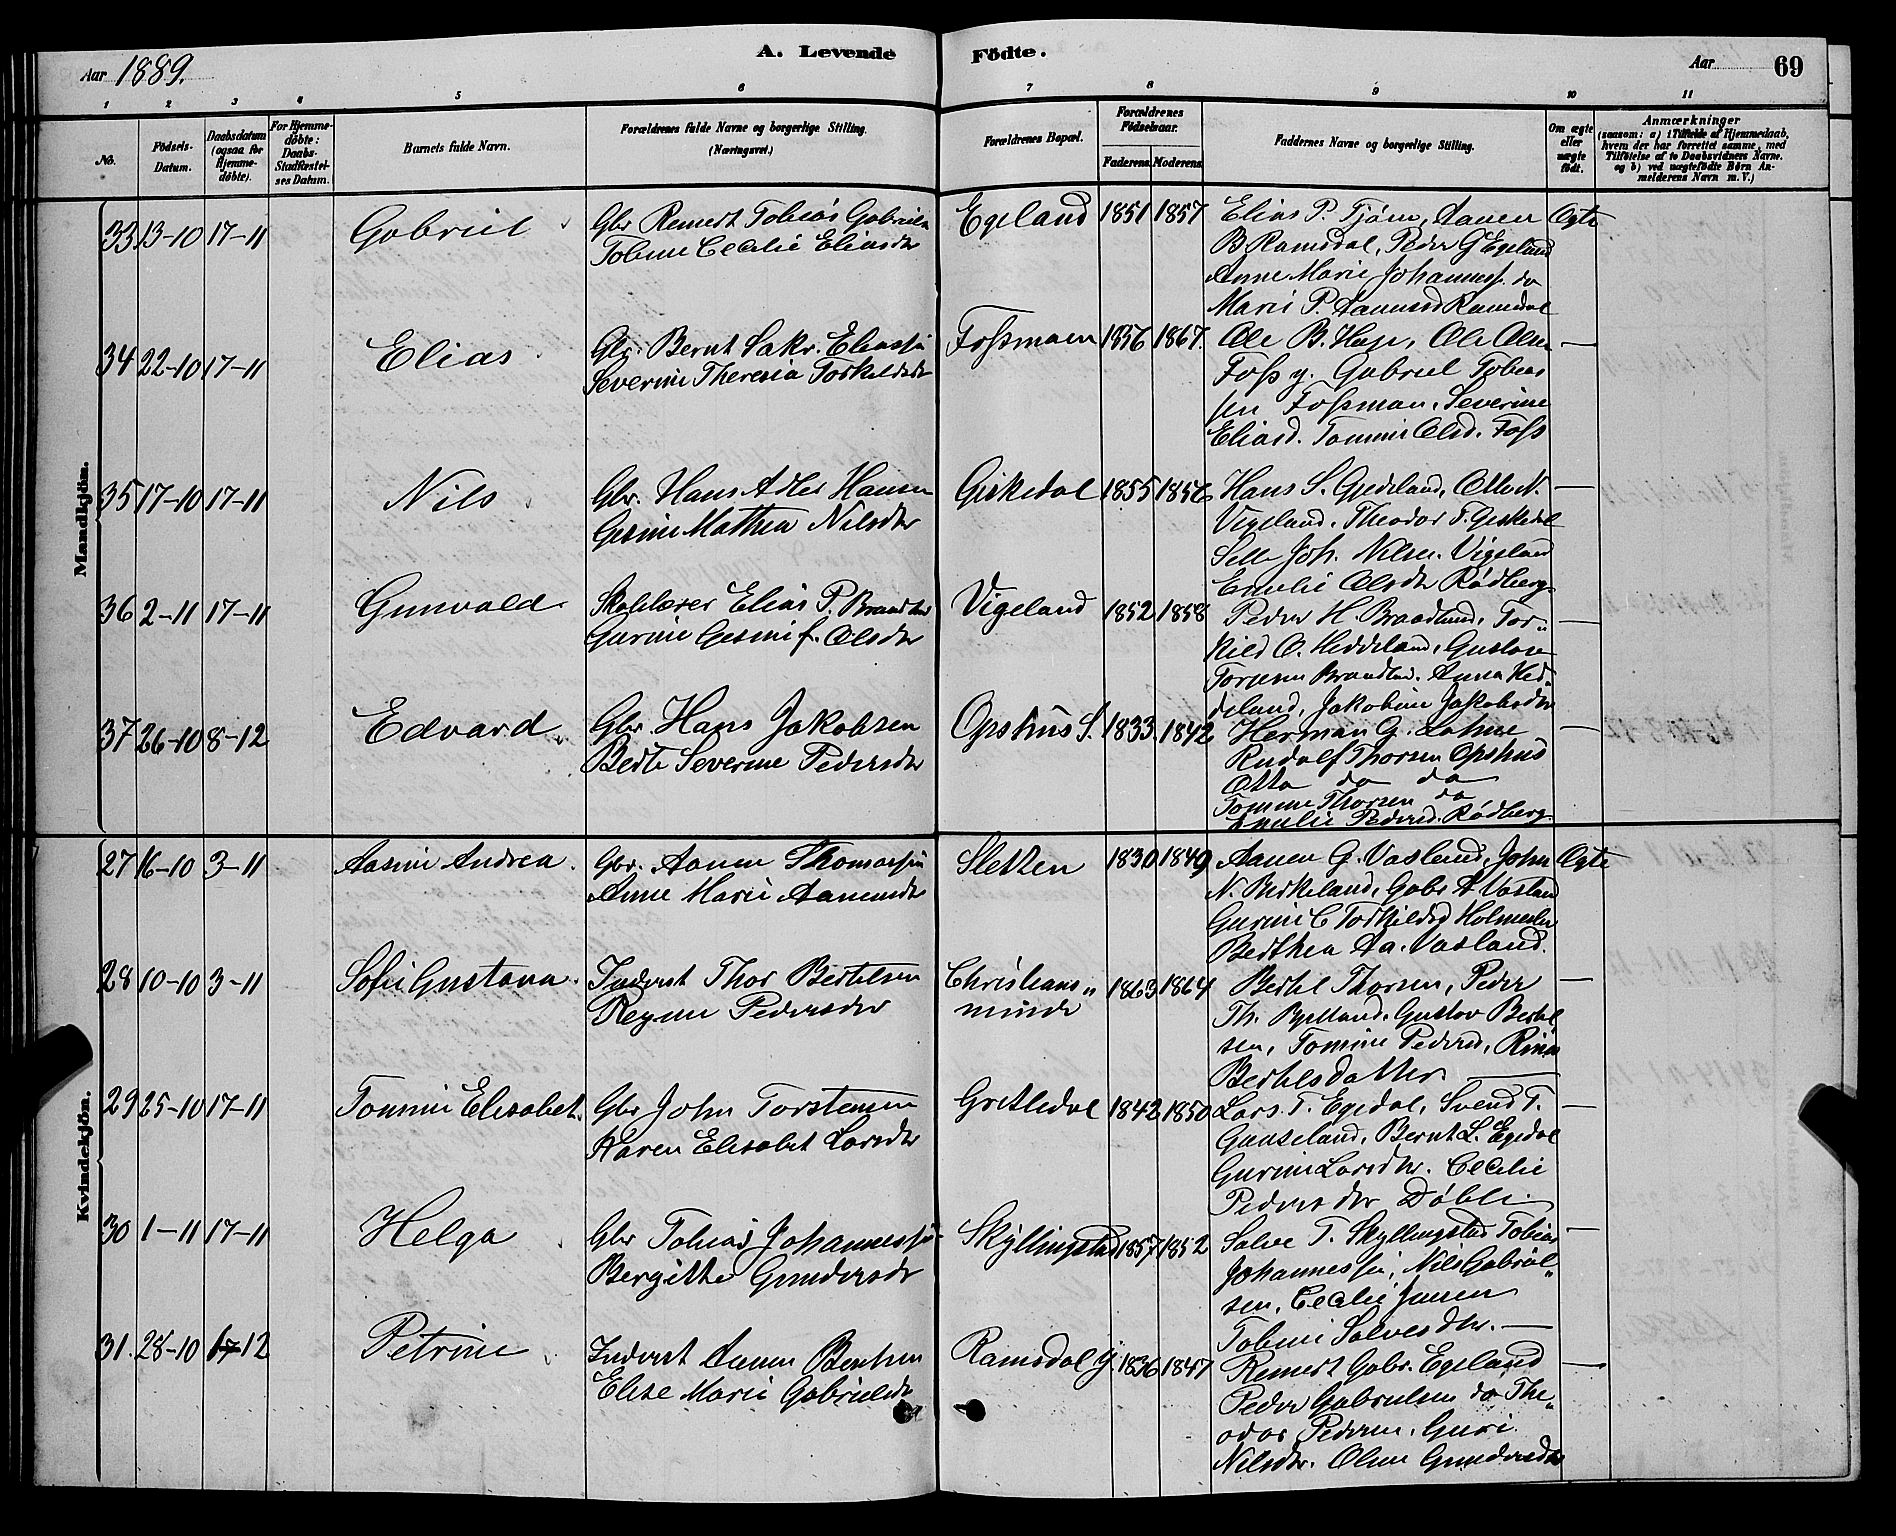 Aar 1889.
A. Levende Födte.
Aar 69
1 2 3 4 5 6 7 8 9 10 11
No.
Födsels-Datum.
Daabsdatum (ogsaa for Hjemme-döbte).
For Hjemme-döbte: Daabs-Stadfæstel-ses Datum.
Barnets fulde Navn.
Forældrenes fulde Navne og borgerlige Stilling. (Næringsvei.)
Forældrenes Bopæl.
Forældrenes Födselsaar.
Faderens. Moderens.
Faddernes Navne og borgerlige Stilling.
Om ægte eller uægte født.
Anmærkninger
(saasom: a) i Tilfælde af Hjemmedaab,
hvem der har forrettet samme, med
Tilföielse af to Daabsvidners Navne.
og b) ved uægtefödte Börn An-
melderens Navn m. V.)
Mandkjön.
33 13-10 17-11 Gabriel
Gbr Remert Tobias Gabriels
Tobine Cecilie Eliasdtr
Egeland 1851 1857
Elias P. Tjöm, Aanen
B Ramsdal, Peder G Egeland
Anne Marie Johannesf. do
Maris P. Aanensd Ramsdal
Ægte
34 22-10 17-11 Elias
Gbr. Bernt Sakr. Eliassen
Severine Theresia Torkildsdtr
Fossmoen 1856 1867.
Ole B. Haje, Ole Olsen
Foss y. Gabriel Tobias
sen Fossman, Severine
Eliasd. Tomine Olsd. Foss
—
35 17-10 17-11 Nils
Gbr. Hans Adler Hansen
Gesine Mathea Nilsdtr
Giskedal 1855 1856
Hans S. Gjedeland, Otto N.
Vigeland, Theodor T. Geskedal
Selle Joh. Nilsen. Vigeland
Emelie Olsdtr Rödberg
—
36 2-11 17-11 Gunvald
Skolelærer Elias P. Braadland
Gurine Gesine f. Olsdtr
Vigeland 1852 1858
Peder H. Braadland, Tor-
kild O. Heddeland, Gustave
Torjesen Braadland. Anna Hed-
deland, Jakobine Jakobsdtr
—
37 26-10 8-12 Edvard.
Gbr. Hans Jakobsen
Berte Severine Pedersdtr
Opshus S. 1833. 1842
Herman G. Lohne
Rudolf Thorsen Opshus
Otto do do
Tomine Thorsen do
Emilie Pedersd. Rödberg
—
Kvindekjön.
27 16-10 3-11 Aasine Andrea.
Gbr. Aanen Thomassen
Anne Marie Aamundsdtr
Sletten 1830 1849
Aanen G. Vasland, John
N. Birkeland, Gabr A Vasland
Gurine C Torkildsd Holmesland
Berthea Aa. Vasland.
Ægte
28 10-10 3-11 Sofie Gustava.
Inderst Thor Bertelsen
Regine Pedersdtr
Christians-
minde 1863 1864
Bertel Thorsen, Peder
Th. Bjelland, Gustov Bertel
sen, Tomine Pedersd, Rina
Bertelsdatter —
—
29 25-10 17-11 Tomine Elisabet.
Gbr John Torstensen
Karen Elisabet Larsdtr
Gritledal 1842 1850
Lars T. Egedal, Svend T.
Gauseland, Bernt L. Egedal
Gurine Larsdtr. Cecilie
Pedersdtr Döbli
—
30 1-11 17-11 Helga
Gbr Tobias Johannessen
Bergitte Gundersdtr
Skyllingstad 1857 1852
Salve T. Skyllingstad Tobias
Johannessen, Nils Gabriel-
sen, Cecilie Jansen
Tobine Salvesdtr. —
—
31. 28-10 12 Petrine
Inderst Aanen Bentsen
Elise Marie Gabrielsdtr
Ramsdal y. 1836 1847
Remert Gabr. Egeland
Peder Gabrielsen do The-
odor Pedersen, Guri
Nilsdtr. Oline Gundersdtr
—